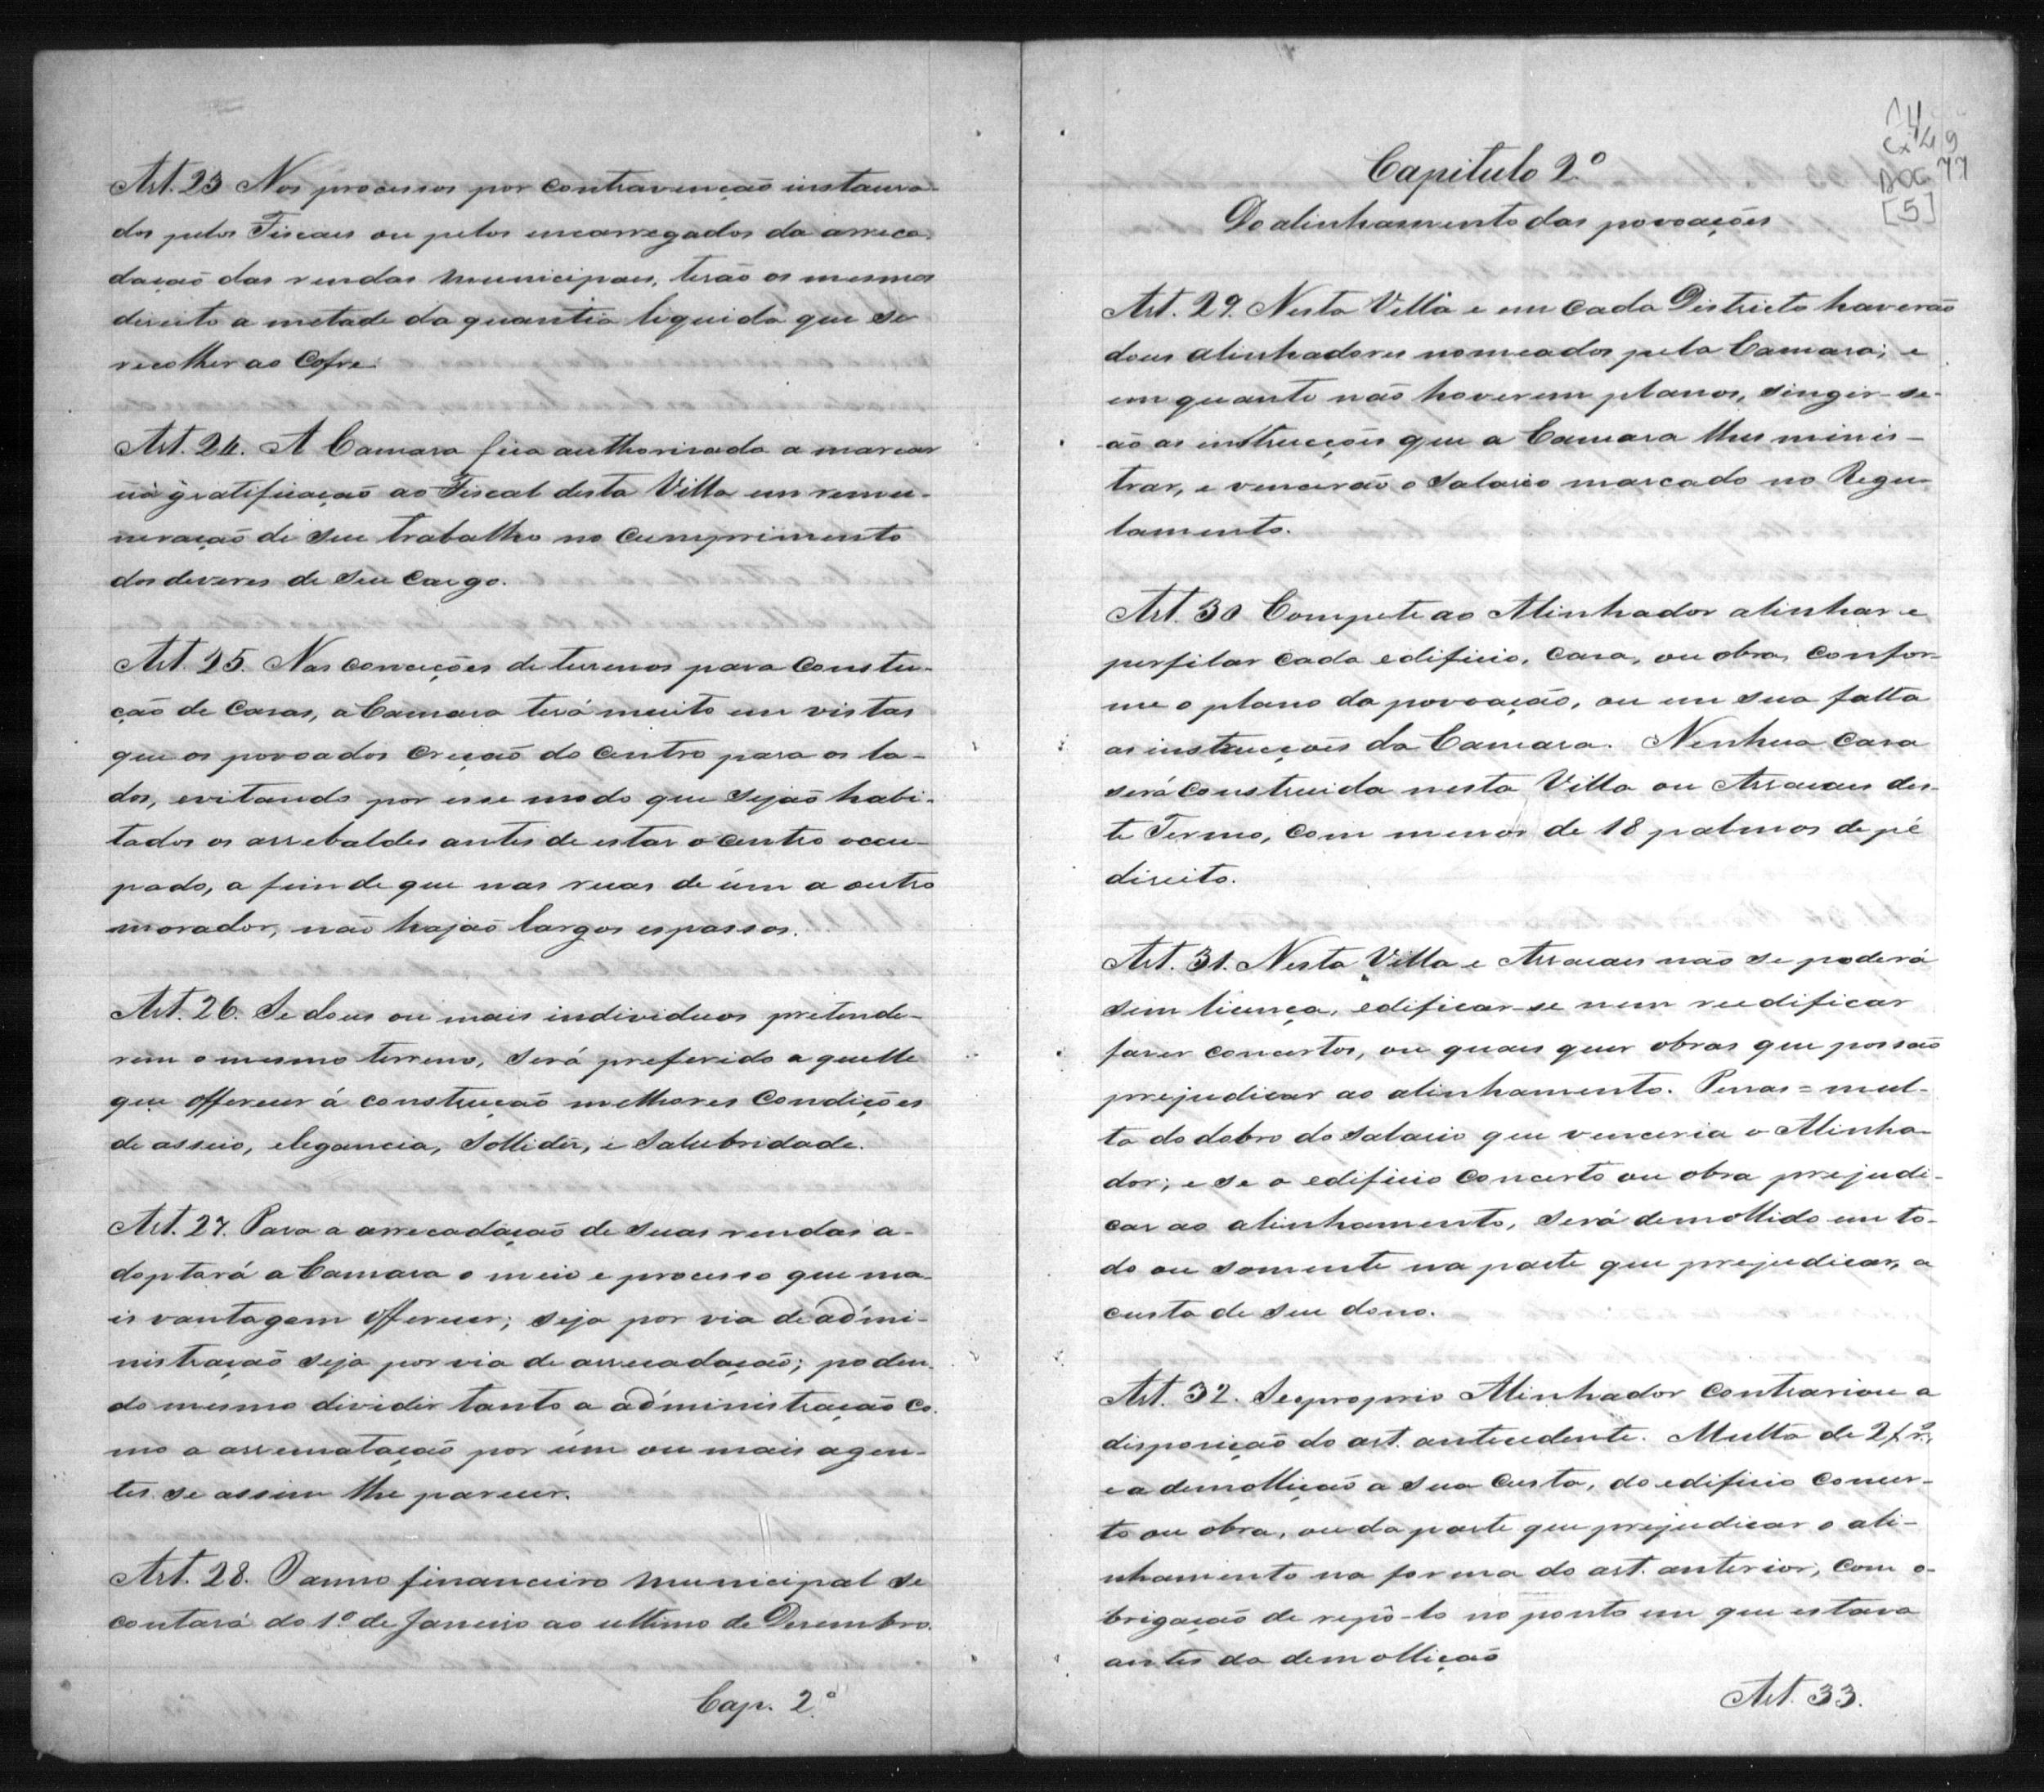 Art. 23 Nos processos por contravenção instaura-
dos pelos Fiscaes ou pelos encarregados da arreca-
dação das rendas municipaes, terão os mesmos
direito a metade da quantia liquida que se
recolher ao Cofre.
Art. 24. A Camara fica authorisada a marcar
uã gratificação ao Fiscal desta Villa em remu-
neração de seu trabalho no cumprimento
dos deveres de seu Cargo.
Art. 25. Nas conceições de terrenos para constru-
ção de casas, a Camara terá muito em vistas
que os povoados creção do centro para os la-
dos, evitando por esse modo que sejão habi-
tados os arrebaldes antes de estar o centro occu-
pado, a fim de que nas ruas de úm a outro
morador, não hajão largos espassos.
Art. 26. Se dous ou mais individuos pretende-
rem o mesmo terreno, será preferido aquelle
que offerecer á construcção melhores condições
de asseio, elegancia, sollidez, e salubridade.
Art. 27. Para a arrecadação de suas rendas a-
doptará a Camara o meio e processo que ma-
is vantagem offerecer; seja por via de admi-
nistração seja por via de arrecadação; poden-
do mesmo dividir tanto a administração co-
mo a arrematação por úm ou mais agen-
tes se assim lhe parecer.
Art. 28. O anno financeiro municipal se
contará do 1º de Janeiro ao ultimo de Desembro.
Cap. 2º
14
Cx 49
DOC. 77
[5]
Capitulo 2º
Do alinhamento das povoações
Art. 29. Nesta Villa e em cada Districto haverão
dous alinhadores nomeados pela Camara; e
em quanto não haverem planos, singir-se-
ão as instrucções que a Camara lhes minis-
trar, e vencerão o salario marcado no Regu-
lamento.
Art. 30 Compete ao Alinhador alinhar e
perfilar cada edificio, casa, ou obra, confor-
me o plano da povoação, ou em sua falta
as instrucçoes da Camara. Nenhua casa
será construida nesta Villa ou Arraiaes des-
te Termo, com menos de 18 palmos de pé
direito.
Art. 31. Nesta Villa e Arraiaes não se poderá
sem licença, edificar-se nem reedificar
faser concertos, ou quaes quer obras que possão
prejudicar ao alinhamento. Penas = mul-
ta do dobro do salario que venceria o Alinha-
dor; e se o edificio concerto ou obra prejudi-
car ao alinhamento, será demollido em to-
do ou somente na parte que prejudicar, a
custa de seu dono.
Art. 32. Se o proprio Alinhador contrariou a
disposição do art. antecedente. Multa de
e a demollição a sua custa, do edificio concer-
to ou obra, ou da parte que prejudicar o ali-
nhamento na forma do art. anterior, com o-
brigação de repô-lo no ponto em que estava
antes da demollição
Art. 33.